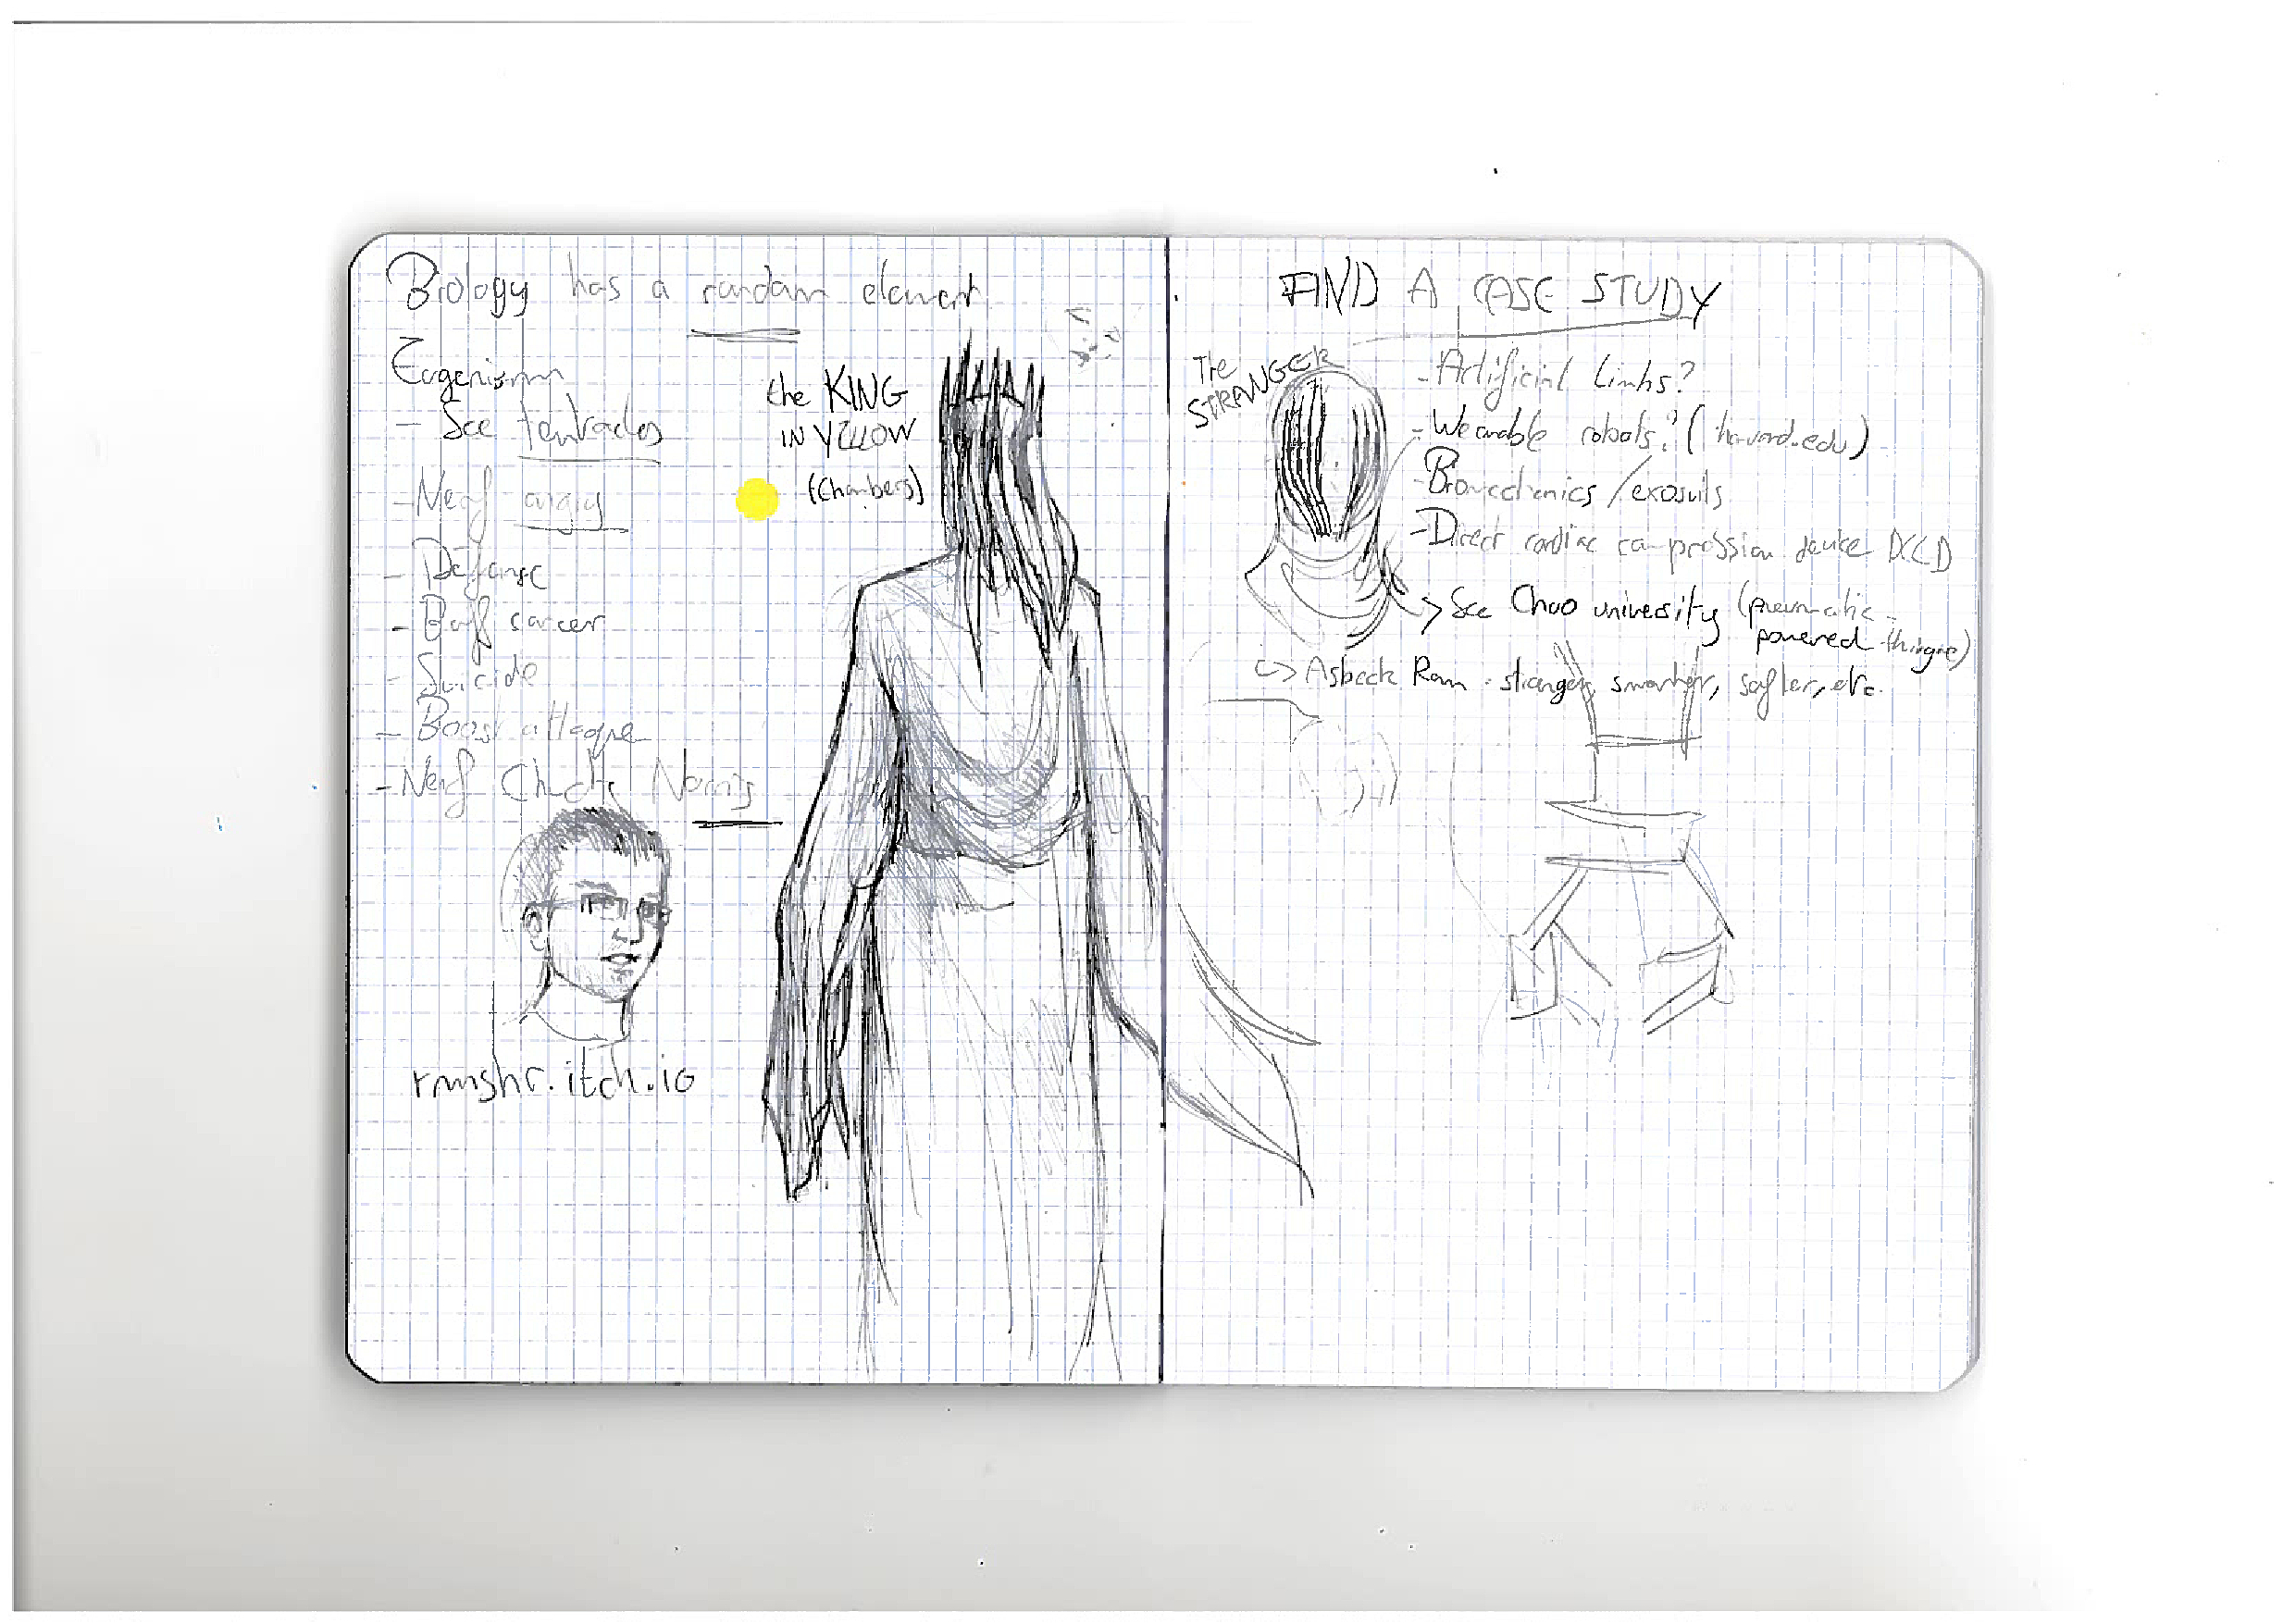 Biology has a random element
Eugenism
- See tentacles
- Nerf angry
- Defense
- Buff cancer
- Suicide
- Boost attaque
- Nerf Chuck Norris
the KING
IN YELLOW
(Chambers)
rmshr.itch.io
FIND A CASE STUDY
The
STRANGER
- Artificial Limbs?
- Wearable robots? (harvard.edu)
- Biomechanics / exosuits
- Direct cardiac compression device DCCD
-> See Chuo university (pneumatic-
powered thingie)
-> Asbeck Ram: stronger, smarter, softer, etc.